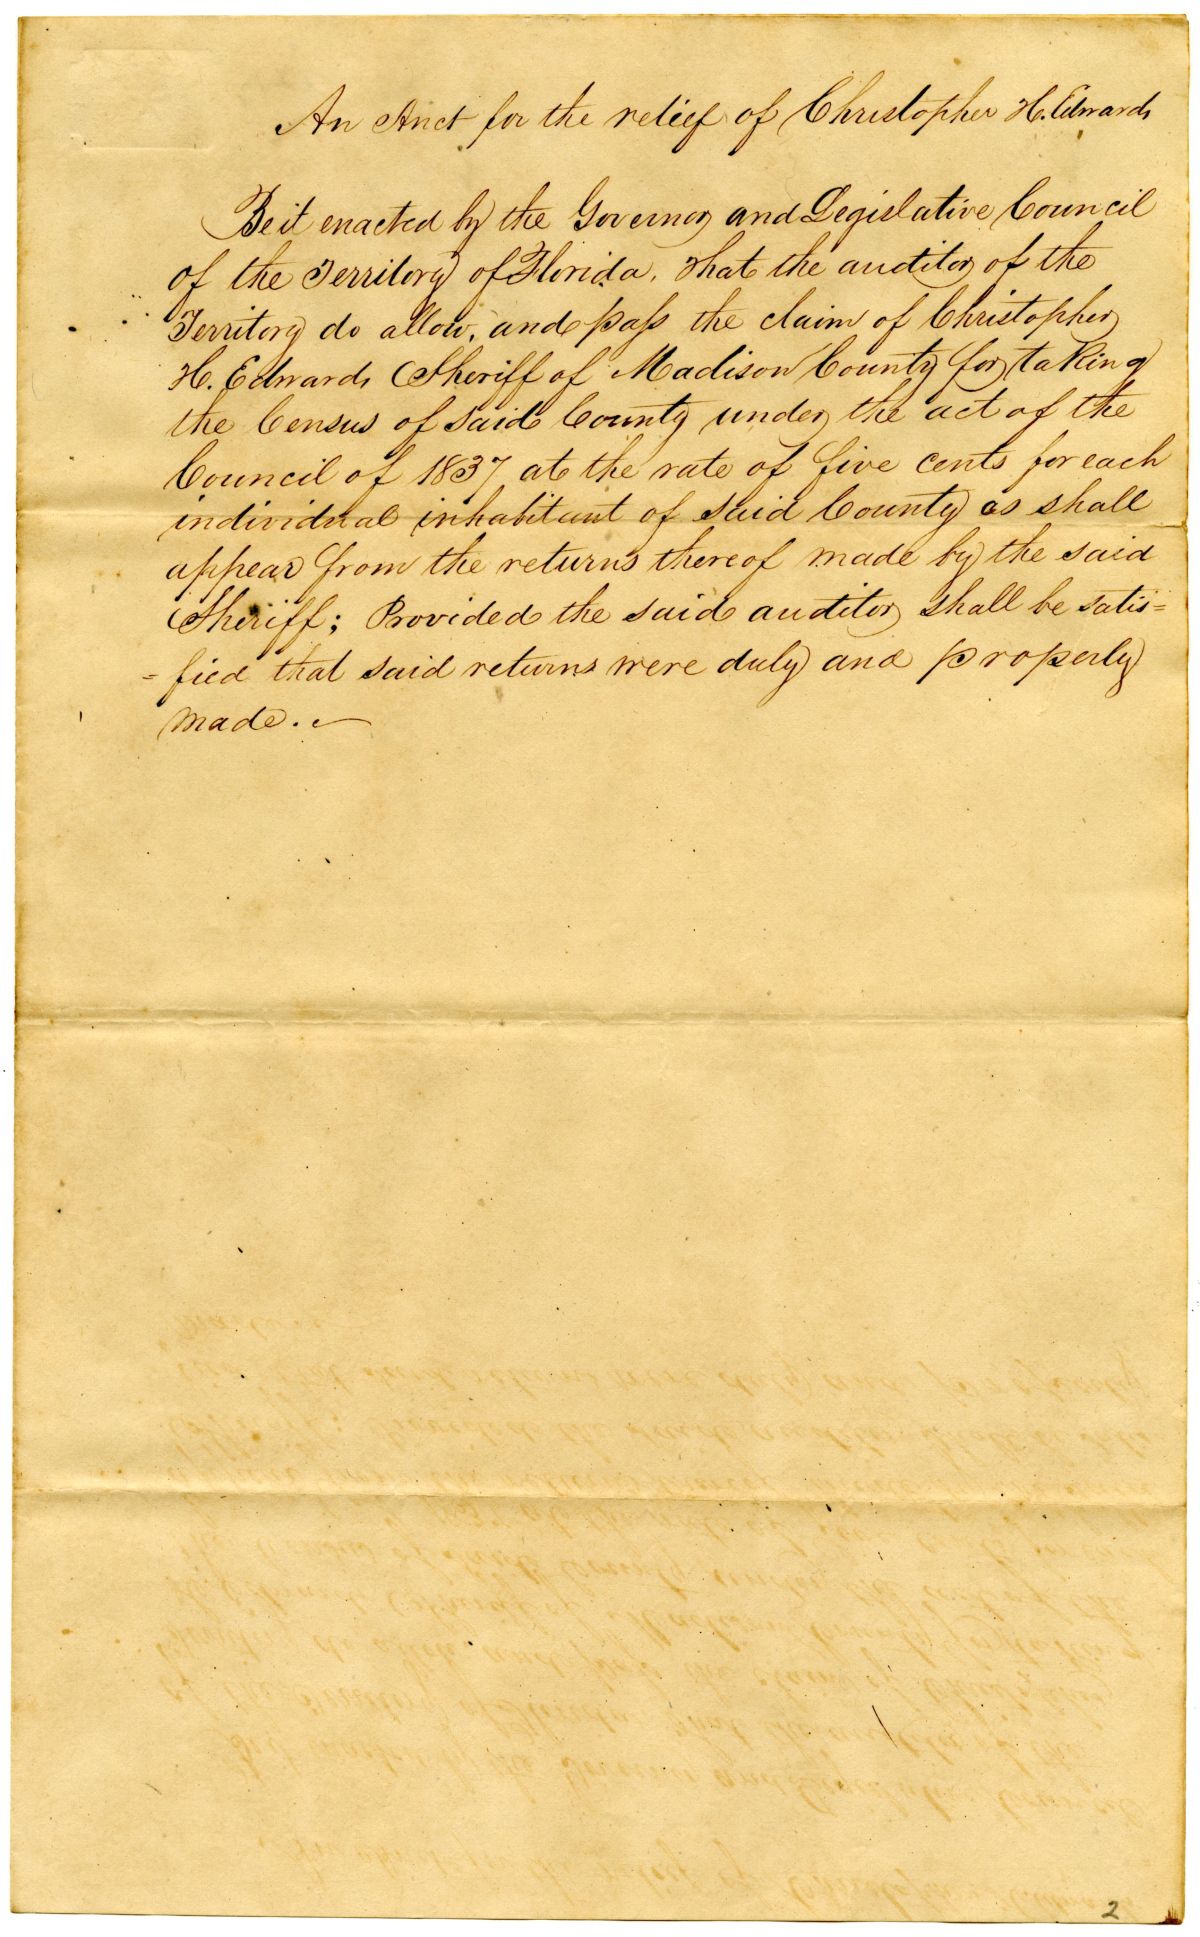 An Anct for the relief of Christopher H. Edwards
Be it enacted by the Governor and Legislative Council
of the Territory of Florida, That the auditor of the
Territory do allow, and pass the claim of Christopher
H. Edwards Sheriff of Madison County for taking
the Census of said County under the act of the
Council of 1837 at the rate of five cents for each
individual inhabitant of said County as shall
appear from the returns thereof made by the said
Sheriff; Provided the said auditor shall be satis=
=fied that said returns were duly and properly
made.
2